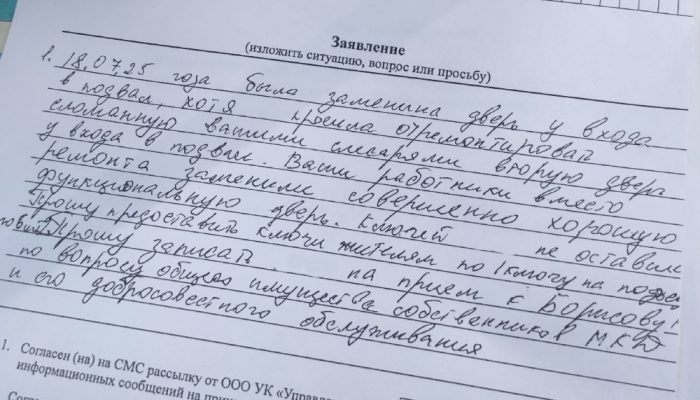 Заявление
(изложить ситуацию, вопрос или просьбу)
1. 18.07.25 года была заменина дверь у входа
в подвал, хотя просила отремонтировать
сломанную вашими слесарями вторую дверь
у входа в подвал. Ваши работники вместо
ремонта заменили совершенно хорошую
функциональную дверь. Ключей не оставили
Прошу предоставить ключи жителям по 1 ключу на
Прошу записать на прием к Борисову
по вопросу общего имущества собственников МКД
и его добросовестного обслуживания
1. Согласен (на) на СМС рассылку от ООО УК «Управле
информационных сообщений на